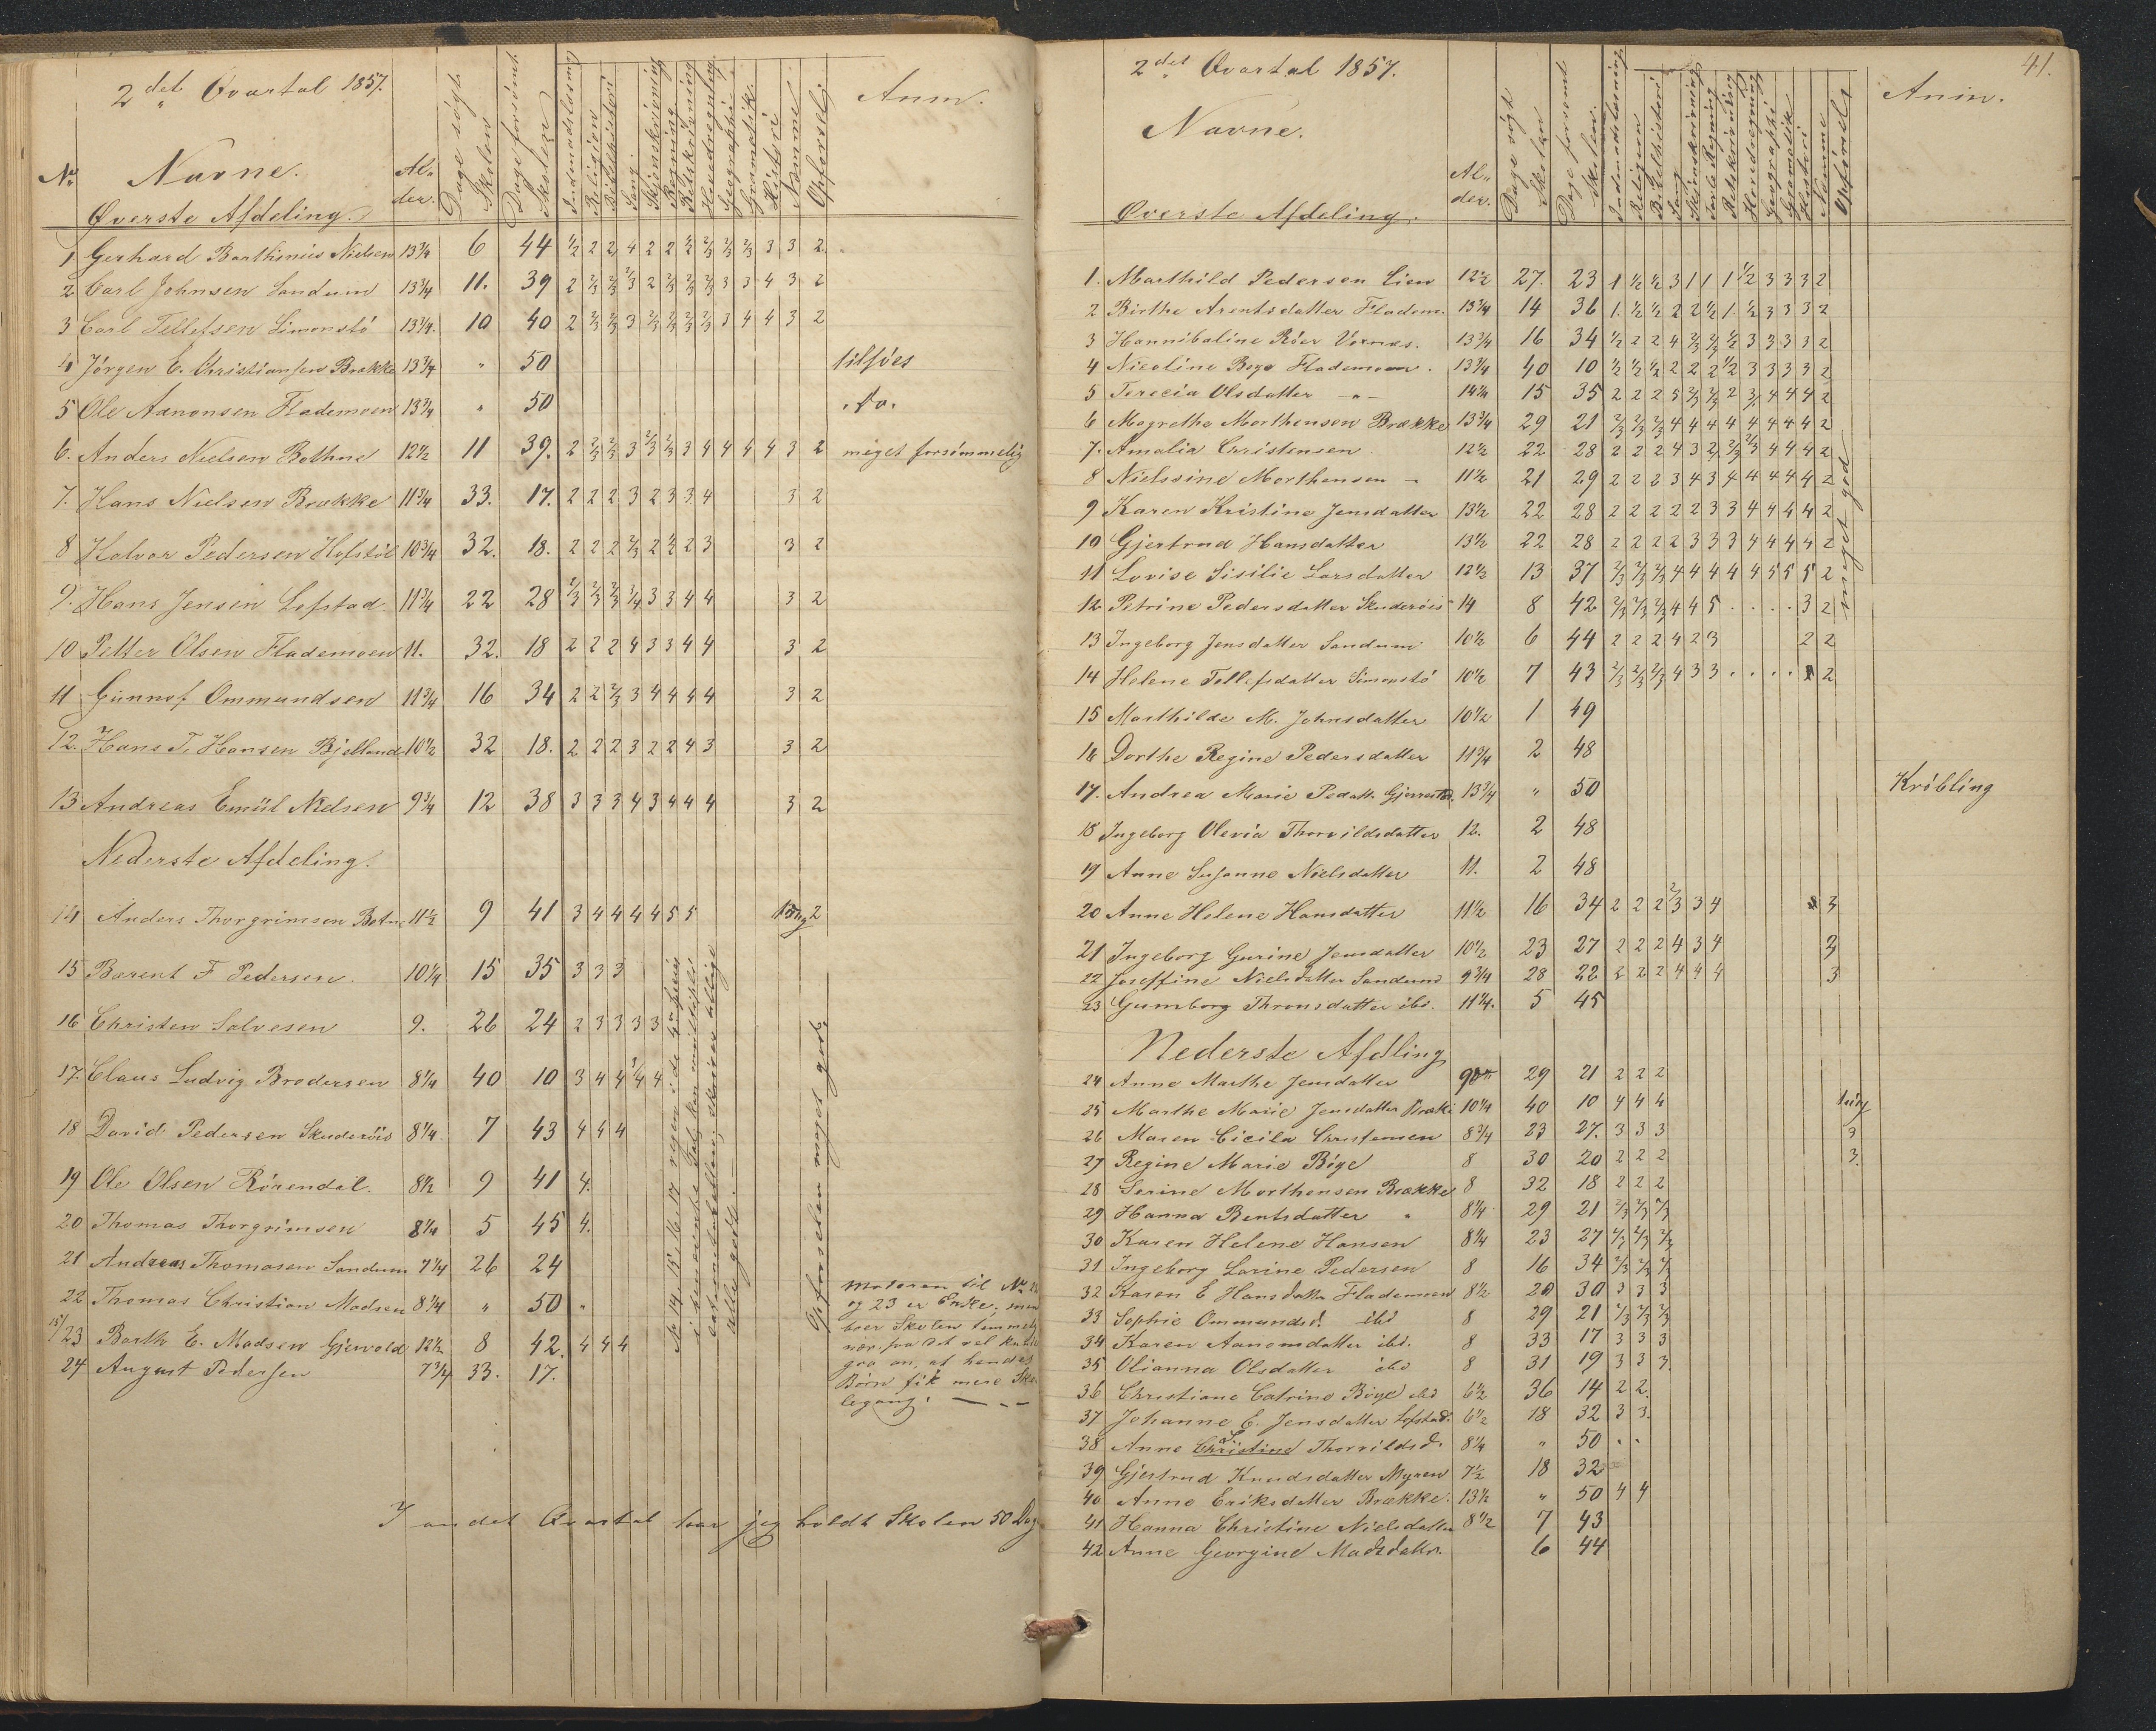 2det Qvartal 1857.
Nr Navne. Al-der. Dage søgt Skolen Dage forsømt Skolen Indenadslæsning Religion Bibelhistori Sang Skjønskrivning Regning Retskrivning Hovedregning Geographi Gramatik Histori Nemme Opførsel Anm.
Øverste Afdeling.
1 Gerhard Barthinius Nielsen 13¾ 6 44 ½ 2 2 4 2 2 ½ ⅔ ⅔ ⅔ 3 3 2
2 Carl Johnsen Sandum 13¾ 11. 39 2 ⅔ ⅔ ⅔ 2 ⅔ ⅔ ⅔ 3 3 4 3 2
3 Carl Tellefsen Simonstö 13¾. 10 40 2 ⅔ ⅔ 3 ⅔ ⅔ ⅔ ⅔ 3 4 4 3 2
4 Jörgen E. Christiansen Brække 13¾ " 50 tilsöes
5 Ole Aanonsen Flademoen 13¾ " 50 . do.
6. Anders Nielsen Bothne 12½ 11 39. 2 ⅔ ⅔ 3 ⅔ ⅔ 3 4 4 4 4 3 2 meget forsömmelig
7. Hans Nielsen Brække 11¾ 33. 17. 2 2 2 3 2 3 3 4 3 2
8 Halvor Pedersen Hofstöl 10¾ 32. 18. 2 2 2 ⅔ 2 ½ 2 3 3 2
9. Hans Jensen Lofstad 11¾ 22 28 ⅔ ⅔ ⅔ ¾ 3 3 4 4 3 2
10 Petter Olsen Flademoen 11. 32. 18 2 2 2 4 3 3 4 4 3 2
11 Gunnof Ommundsen 11¾ 16 34 2 2 ⅔ 3 4 4 4 4 3 2
12. Hans T. Hansen Bjelland 10½ 32 18. 2 2 2 3 2 2 4 3 3 2
13 Andreas Emiil Nielsen 9¾ 12 38 3 3 3 4 3 4 4 4 3 2
Nederste Afdeling.
14 Anders Thorgrimsen Botne 11½ 9 41 3 4 4 4 4 5 5 2
15 Bærent F Pedersen. 10¼ 15 35 3 3 3
16 Christen Salvesen 9. 26 24 2 3 3 3 3
17. Claus Ludvig Brodersen 8¼ 40 10 3 4 4 ¾ 4
18 David Pedersen Skuderöis 8¼ 7 43 4 4 4
19 Ole Olsen Rörendal. 8½ 9 41 4.
20 Thomas Thorgrimsen 8¼ 5 45 4.
21 Andreas Thomasen Sandum 7¼ 26 24
22 Thomas Christian Madsen 8¼ " 50 "
23 Barth E. Madsen Gjervold 12½ 8 42. 4 4 4
24 August Pedersen 7¾ 33. 17.
Opförselen meget god.
Moderen til No 22
og 23 er Enke, men
boer Skolen temmelig
nær, saa det vel kunde
gaa an, at hendes
Börn fik mere Sko-
legang.
I andet Qvartal har jeg holdt Skolen 50 Dag
41.
2det Qvartal 1857.
Navne. Al-der. Dage søgt Skolen Dage forsømt Skolen Indenadslæsning Religion Bibelhistori Sang Skjönskrivning Tavle Regning Retskrivning Hovedregning Geographi Gramatik Histori Nemme Opförsels Anm.
Øverste Afdeling.
1. Marthild Pedersen Lien 12½ 27. 23 1 ½ ½ 3 1 1 1 ½ 3 3 3 2
2 Birthe Arentsdatter Fladem. 13¼ 14 36 1. ½ ½ 2 2 ½ 1. ½ 3 3 3 2
3 Hannibaline Röer Vornæs. 13¾ 16 34 ½ 2 2 4 ⅔ ⅔ ½ 3 3 3 3 2
4 Nicoline Boye Flademoen. 13¾ 40 10 ½ ½ ½ 2 2 2 ½ 3 3 3 3 2
5 Terecia Olsdatter -"- 14¼ 15 35 2 2 2 5 ⅔ ⅔ 2 ¾ 4 4 4 2
6 Magrethe Morthensen Brække 13¾ 29 21 ⅔ ⅔ ⅔ 4 4 4 4 4 4 4 4 2
7. Amalia Christensen 12½ 22 28 2 2 2 4 3 2 ⅔ ⅔ 4 4 4 2
8 Nielssine Morthensen - 11½ 21 29 2 2 2 3 4 3 4 4 4 4 4 2
9 Karen Kristine Jensdatter 13½ 22 28 2 2 2 2 2 3 3 4 4 4 4 2
10 Gjestrud Hansdatter 13½ 22 28 2 2 2 2 3 3 3 4 4 4 4 2
11 Lovise Sisilie Larsdatter 12½ 13 37 ⅔ ⅔ ⅔ 4 4 4 4 4 5 5 5 2
12 Petrine Pedersdatter Skuderöis 14 8 42 ⅔ ⅔ ⅔ 4 4 5 . . . . 3 2
meget god
13 Ingeborg Jensdatter Sandum 10½ 6 44 2 2 2 4 2 3 2 2
14 Helene Tellefsdatter Simonstö 10½ 7 43 ⅔ ⅔ ⅔ 4 3 3 . . . . 2
15 Marthilde M. Johnsdatter 10½ 1 49
16 Dorthe Regine Pedersdatter 11¾ 2 48
17. Andrea Marie Pedatt. Gjerrestad. 13¾ " 50 Kröbling
18 Ingeborg Olevia Thorvildsdatter 12. 2 48
19 Anne Susanne Nielsdatter 11. 2 48
20 Anne Helene Hansdatter 11½ 16 34 2 2 2 ⅔ 3 4 3
21 Ingeborg Gurine Jensdatter 10½ 23 27 2 2 2 4 3 4 3
22 Joseffine Nielsdatter Sandum 9¾ 28 22 2 2 2 4 4 4 3
23 Gumborg Thronsdatter ibd. 11¼. 5 45
Nederste Afdling
24 Anne Marthe Jensdatter 29 21 2 2 2
25 Marthe Marie Jensdatter Bræk. 10¼ 40 10 4 4 4 tung
26 Maren Cicila Christensen 8¾ 23 27. 3 3 3 3
27 Regine Marie Böye 8 30 20 2 2 2 3.
28 Serine Morthensen Brække 8 32 18 2 2 2
29 Hanna Bentsdatter " 8¼ 29 21 ⅔ ⅔ ⅔
30 Karen Helene Hansen 8¼ 23 27 ⅔ ⅔ ⅔
31 Ingeborg Larine Pedersen 8 16 34 ⅔ ⅔ ⅔
32 Karen E Hansdatter Flademoen 8½ 20 30 3 3 3
33 Sophie Ommundsd. ibd 8 29 21 ⅔ ⅔ ⅔
34 Karen Aanonsdatter ibd. 8 33 17 3 3 3
35 Olianna Olsdatter ibd 8 31 19 3 3 3.
36 Christiane Catrine Böye ibd 6½ 36 14 2 2.
37 Johanne E. Jensdatter Lofstad. 6½ 18 32 3 3.
38 Anne Christine Thorvildsd. 8¼ " 50 " "
39 Gjestrud Knudsdatter Myren 7½ 18 32
40 Anne Eriksdatter Brække. 13½ " 50 4 4
41 Hanna Christine Nielsdatter 8½ 7 43
42 Anne Georgine Madsdatter. 6 44